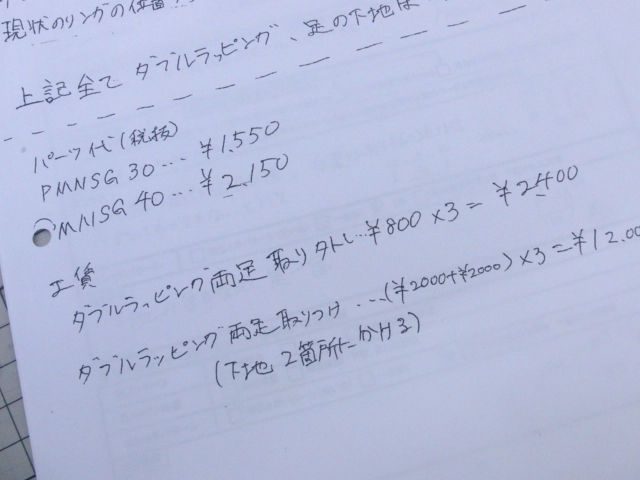 現状のリングの位置
上記全て ダブルラッピング、足の下地は
パーツ代(税抜)
PMNSG 30... ¥1,550
MNSG 40... ¥2,150
工賃
ダブルラッピング両足取り外し...¥800×3=¥2400
ダブルラッピング両足取りつけ....(¥2000+¥2000)×3=¥12.00
(下地 2箇所にかける)